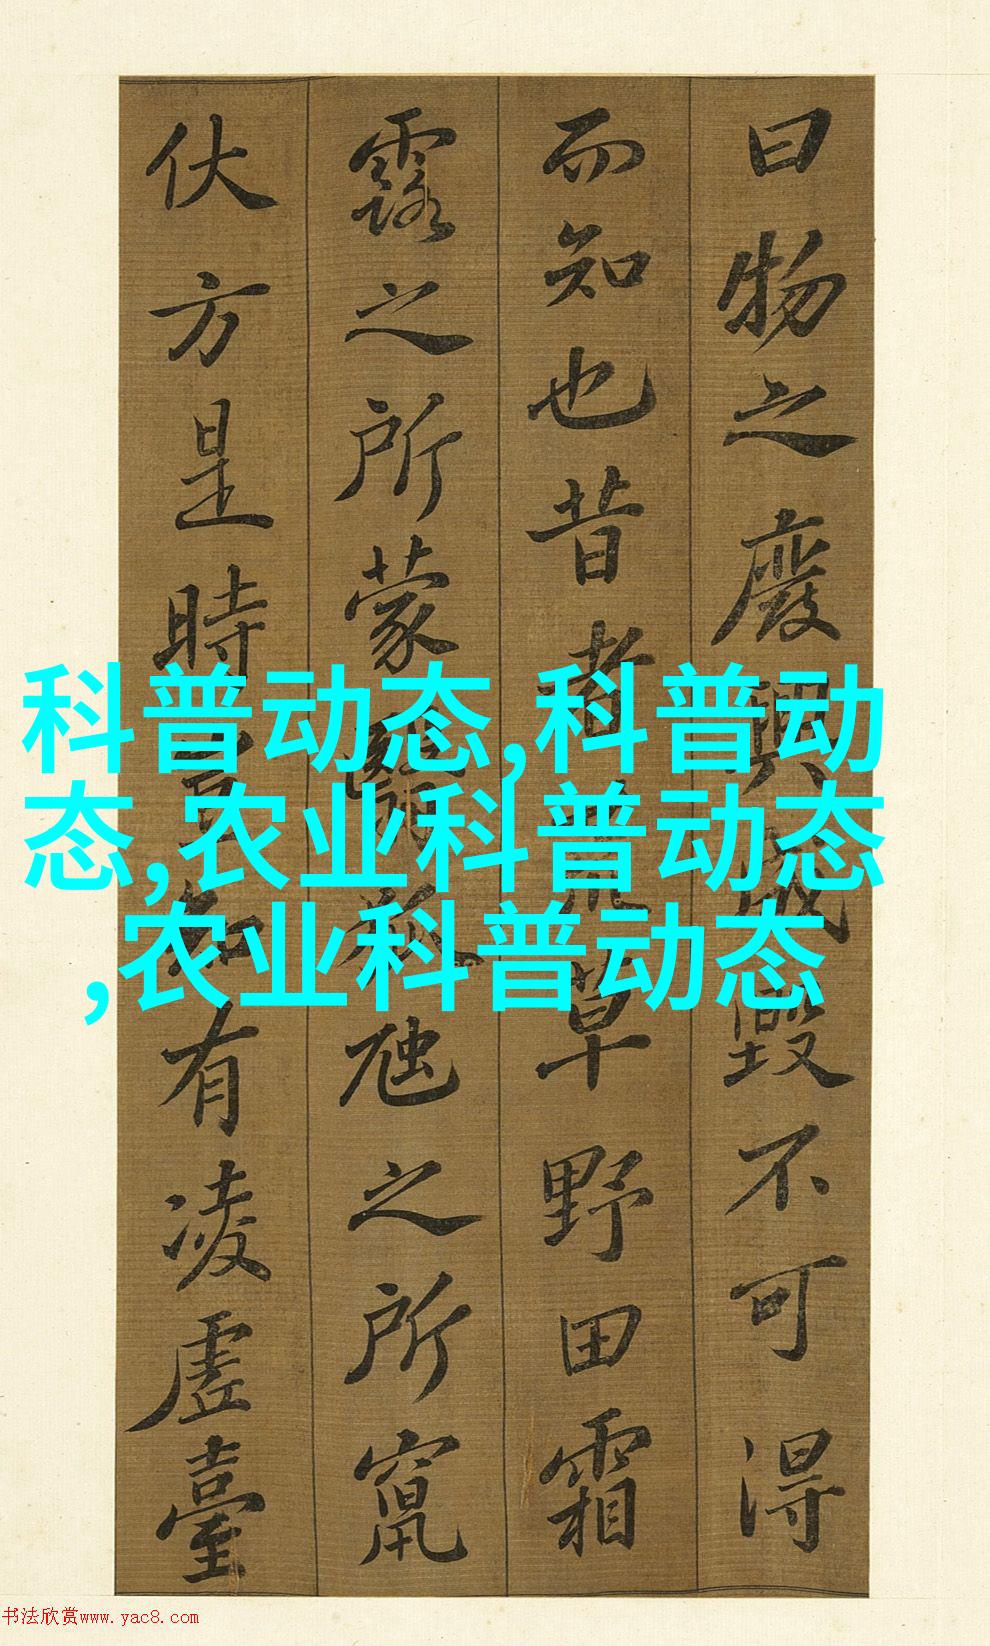 曰物之廢興成毀不可得
而知也昔者荒草野田霜
露之所蒙翳狐虺之所竄
伏方是時豈知有凌虛臺
科普动态,科普动
态,农业科普动态
,农业科普动态
书法欣赏www.yac8.com